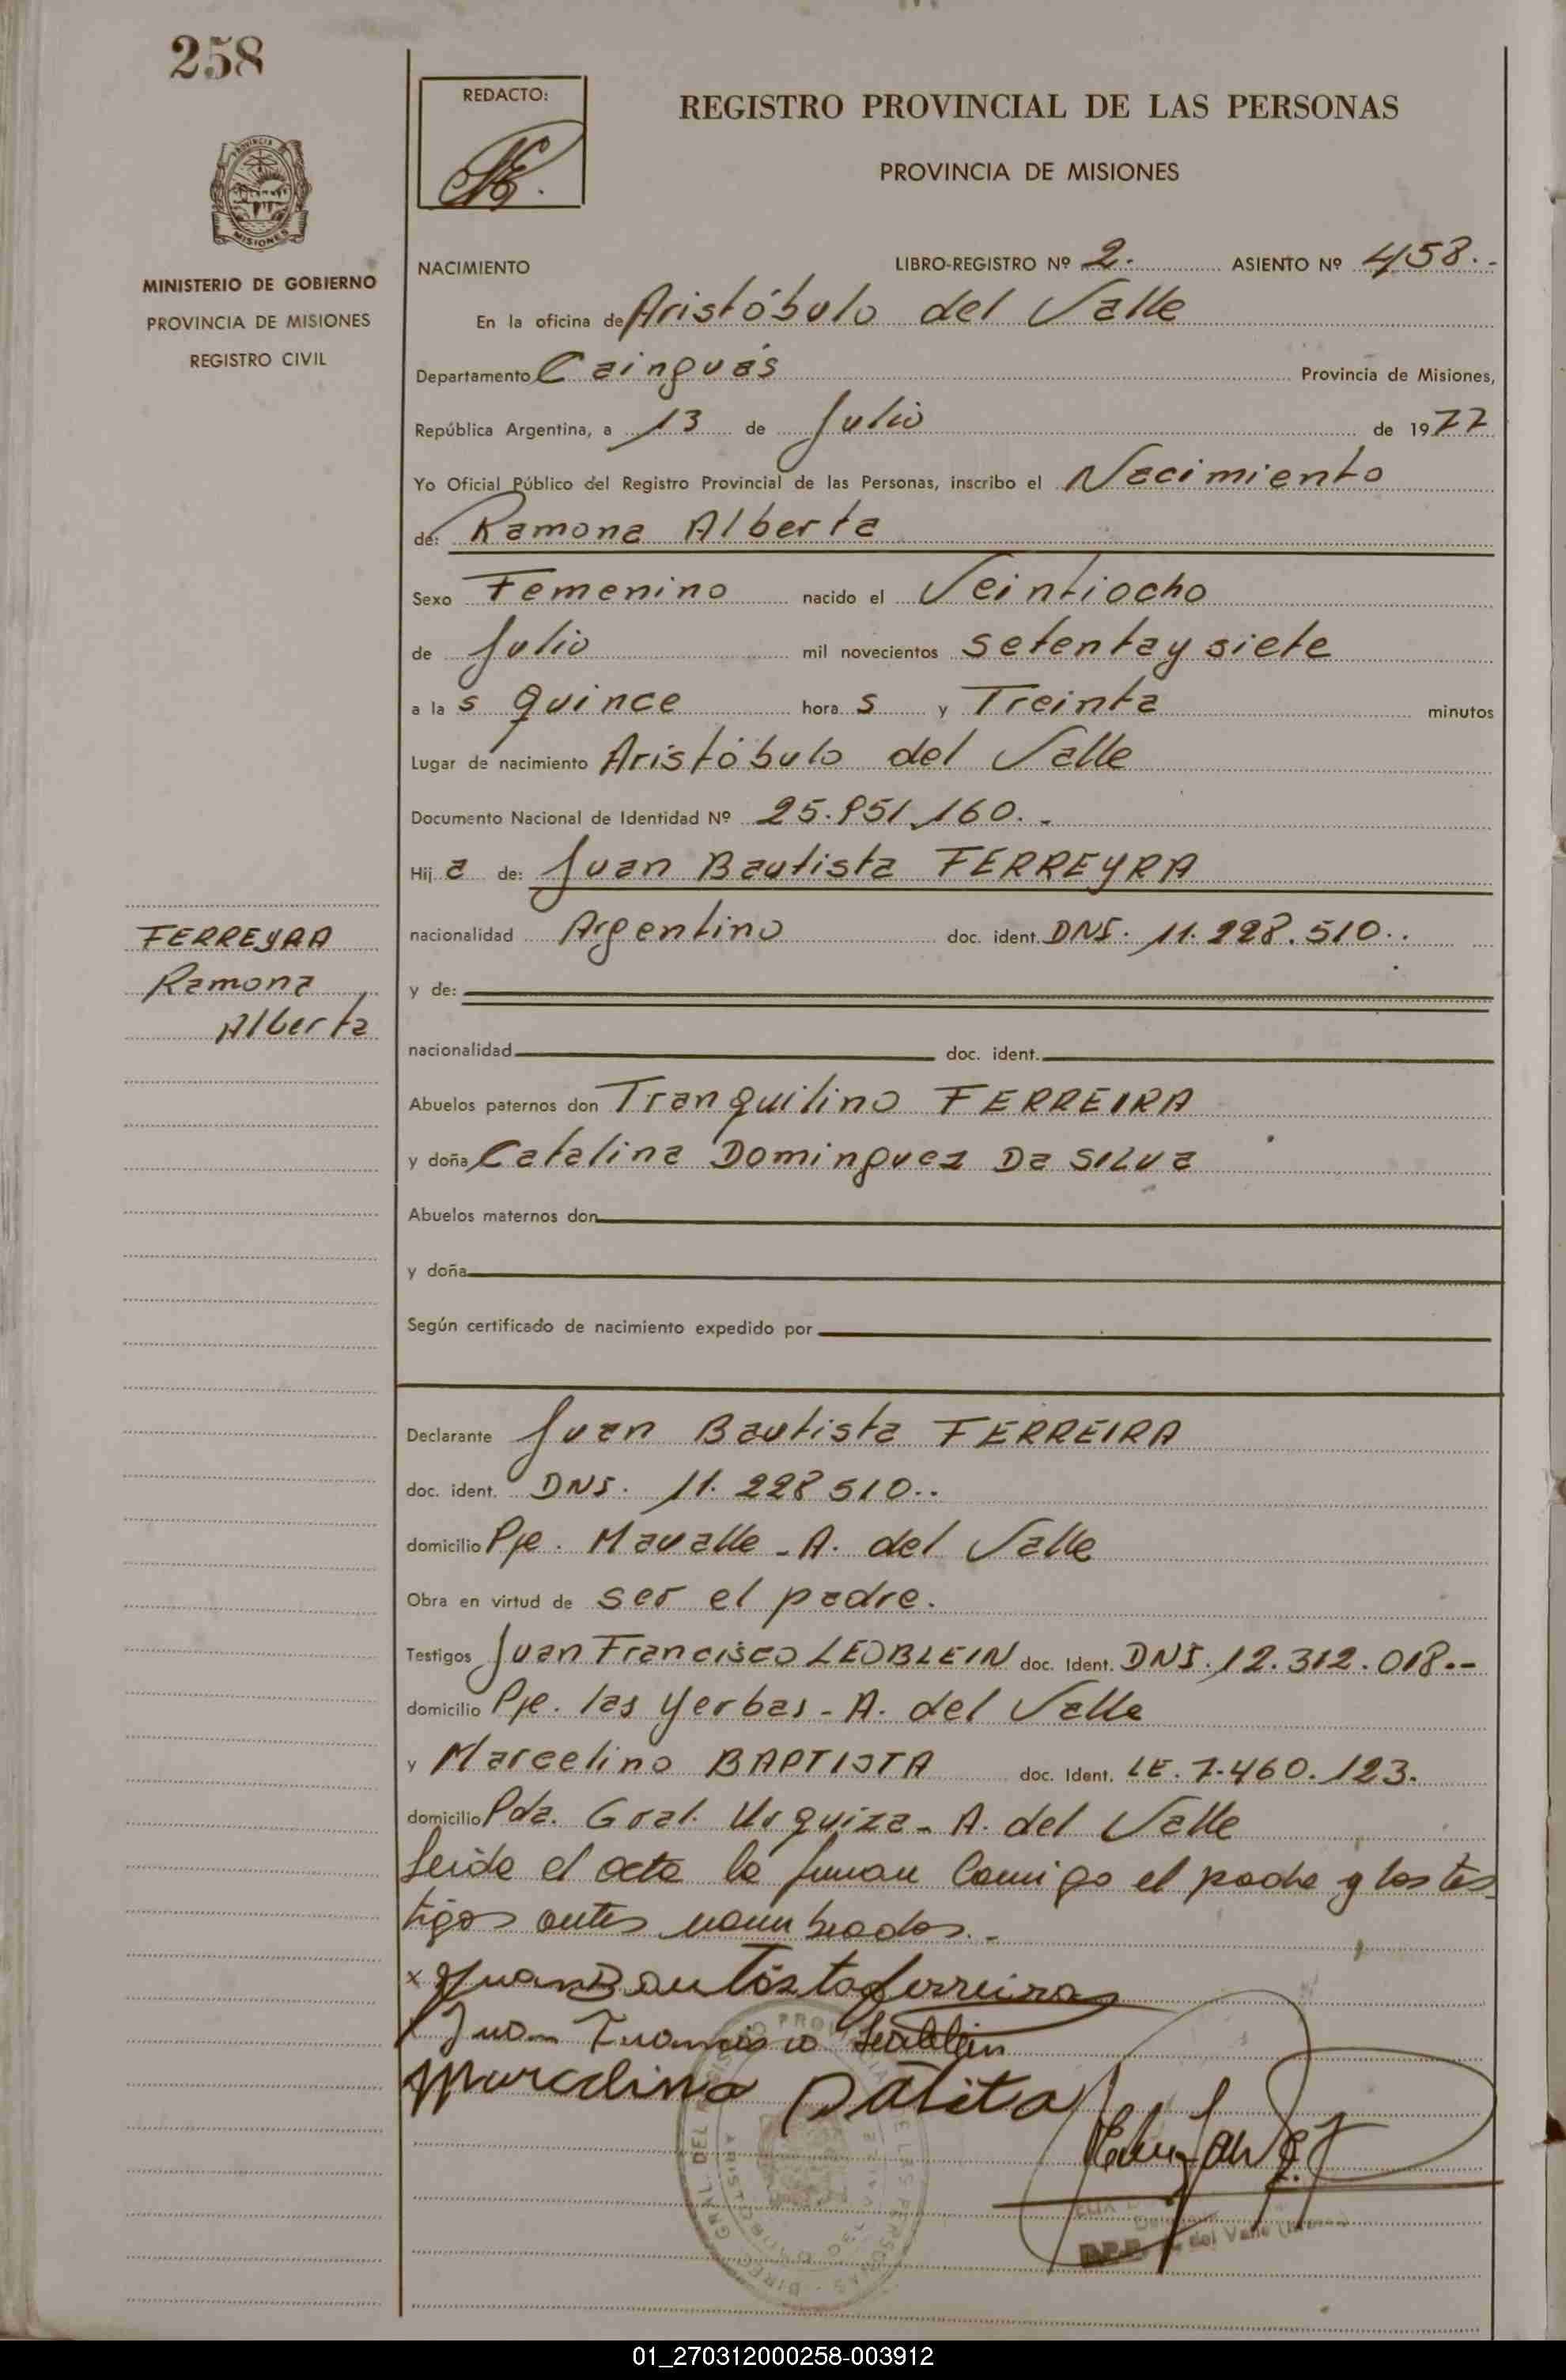 258
REDACTO:
REGISTRO PROVINCIAL DE LAS PERSONAS
PROVINCIA DE MISIONES
MISIONES
MINISTERIO DE GOBIERNO
PROVINCIA DE MISIONES
REGISTRO CIVIL
NACIMIENTO LIBRO-REGISTRO Nº 2. ASIENTO Nº 458.-
En la oficina de Aristóbulo del Valle
Departamento Cainguás Provincia de Misiones,
República Argentina, a 13 de Julio de 1977
Yo Oficial Público del Registro Provincial de las Personas, inscribo el Nacimiento
de: Ramona Alberta
Sexo Femenino nacido el Veintiocho
de Julio mil novecientos setenta y siete
a las quince horas y Treinta minutos
Lugar de nacimiento Aristóbulo del Valle
Documento Nacional de Identidad Nº 25.951.160.-
Hija de: Juan Bautista FERREYRA
FERREYRA
Ramona
Alberta
nacionalidad Argentino doc. ident. DNI. 11.228.510..
y de:
nacionalidad doc. ident.
Abuelos paternos don Tranquilino FERREIRA
y doña Catalina Dominguez Da SILVa
Abuelos maternos don
y doña
Según certificado de nacimiento expedido por
Declarante Juan Bautista FERREIRA
doc. ident. DNI. 11.228 510..
domicilio Pje. Mavalle - A. del Valle
Obra en virtud de ser el padre.
Testigos Juan Francisco LEOBLEIN doc. Ident. DNI. 12.312.018.--
domicilio Pje. las Yerbas - A. del Valle
y Marcelino BAPTISTA doc. Ident. LE. 7.460.123.
domicilio Pda. Gral. Urquiza - A. del Valle
Leida el acta la firman conmigo el padre y los tes
tigos antes nombrados.-
x Juan Bautista ferreira
Juan Francisco Leoblein
Marcelino
01_270312000258-003912